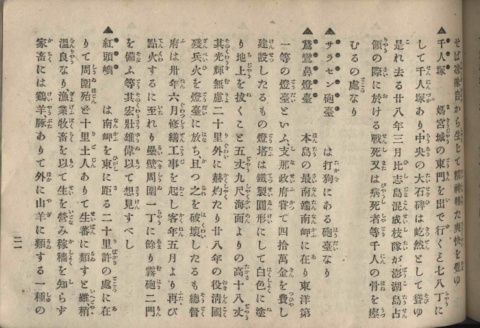 ▲千人塚　媽宮城の東門を出で行くこと七八丁に
して千人塚あり中央の大石碑は屹然として聳ゆ
是れ去る廿八年三月比志島混成枝隊が澎湖島占
領の際に於ける戰死又は病死者等千人の骨を瘞
むるの處なり
▲サラセン砲臺　は打狗にある砲臺なり
▲鵞鑾鼻燈臺　本島の最南端南岬に在り東洋第
一等の燈臺といふ支那政府甞て四拾萬金を費し
建設したるもの燈塔は鐵製圓形にして白色に塗
り地上を拔くこと五丈九尺海面よりの高十八丈
其光輝無慮二十里外に赫灼たり廿八年の役清國
殘兵火を燈臺に放ち且つ之を破壞したるも總督
府は卅年六月修繕工事を起し客年五月より再び
點火するに至れり壘壁周圍一丁に餘り霧砲二門
を備ふ等其宏壯雄偉以て想見すべし
▲紅頭嶼　は南岬を東に距る二十里許の處に在
りて周圍殆ど十里土人ありて生蕃に類すと雖稍
溫良なり漁業牧畜を以て生を營み稼穡を知らず
家畜には鷄豚ありて外に山羊に類する一種の
二一